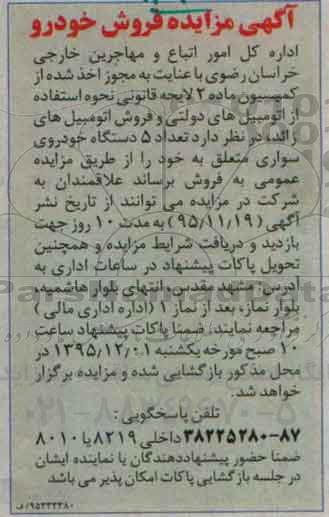 آگهی مزایده فروش خودرو
اداره کل امور اتباع و مهاجرین خارجی
خراسان رضوی با عنایت به مجوز اخذ شده از
کمیسیون ماده ۲ لایحه قانونی نحوه استفاده
از اتومبیل های دولتی و فروش اتومبیل های
زائد، در نظر دارد تعداد ۵ دستگاه خودروی
سواری متعلق به خود را از طریق مزایده
عمومی به فروش برساند علاقمندان به
شرکت در مزایده می توانند از تاریخ نشر
آگهی (۹۵/۱۱/۱۹) به مدت ۱۰ روز جهت
بازدید و دریافت شرایط مزایده و همچنین
تحویل پاکات پیشنهاد در ساعات اداری به
آدرس: مشهد مقدس، انتهای بلوار هاشمیه،
بلوار نماز، بعد از نماز ۱ (اداره اداری مالی)
مراجعه نمایند؛ ضمنا پاکات پیشنهاد ساعت
۱۰ صبح مورخه یکشنبه ۱۳۹۵/۱۲/۰۱ در
محل مذکور بازگشایی شده و مزایده برگزار
خواهد شد.
تلفن پاسخگویی:
۳۸۲۲۵۲۸۰-۸۷ داخلی ۸۲۱۹ یا ۸۰۱۰
ضمنا حضور پیشنهاددهندگان یا نماینده ایشان
در جلسه بازگشایی پاکات امکان پذیر می باشد
۹۵۲۳۳۲۸۰/ف